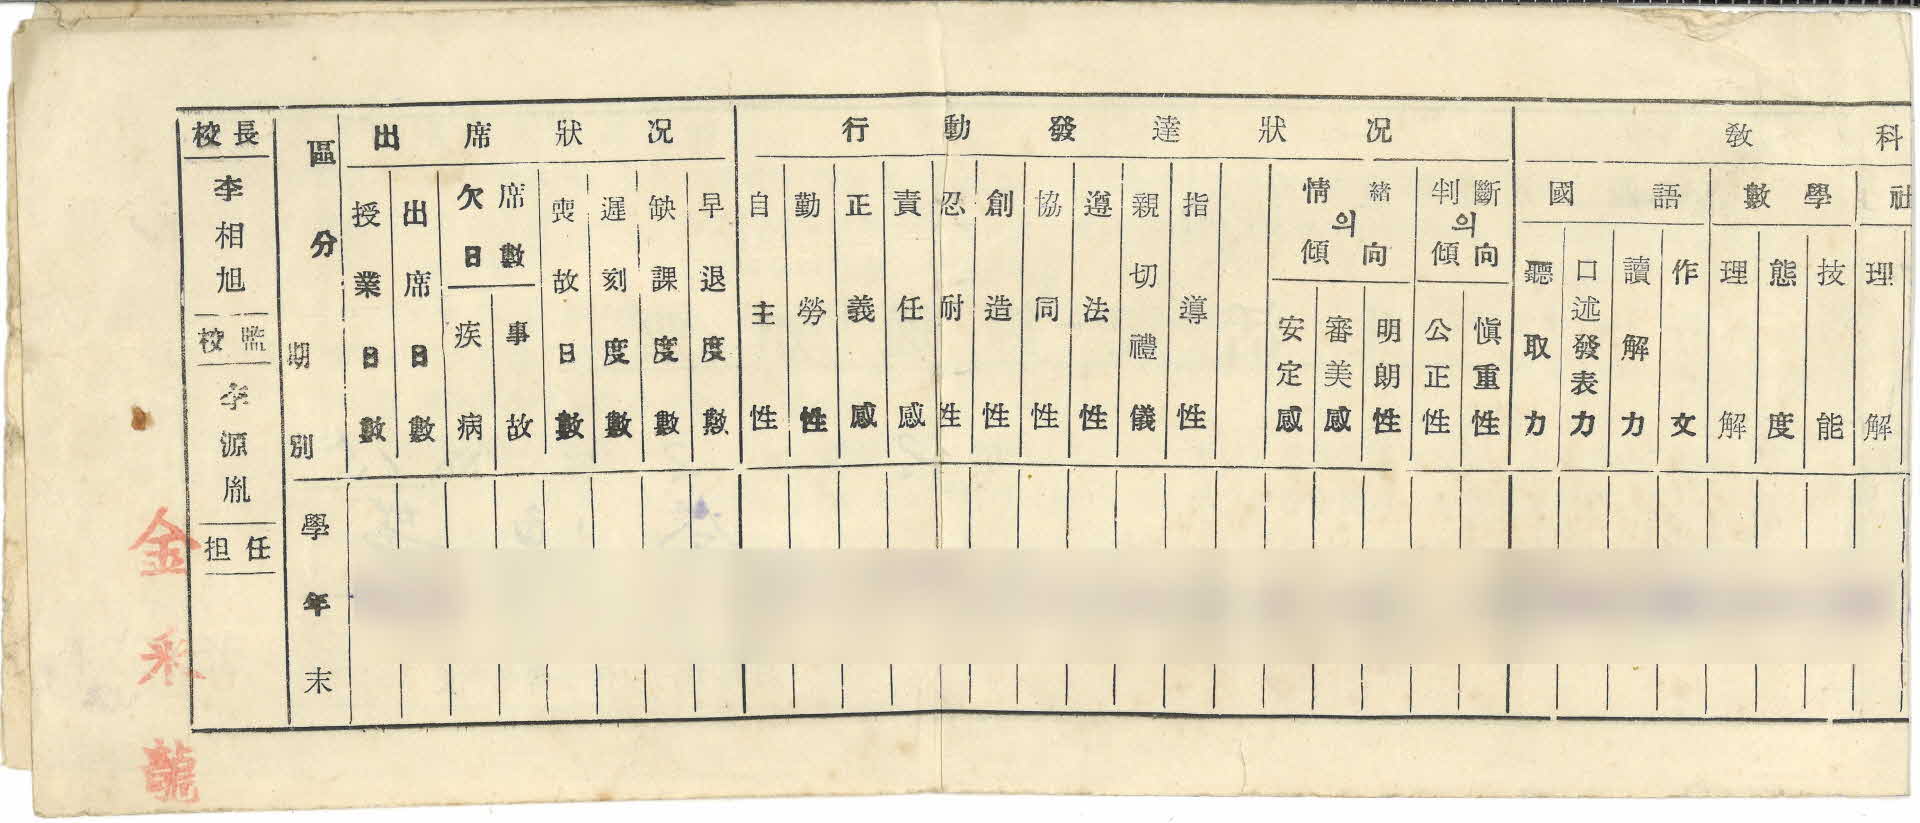 校長
李相旭
校監
李源胤
担任
金彩龍
區分
期別
出席狀況
授業日數
出席日數
欠席日數
疾病
事故
喪故日數
遲刻度數
缺課度數
早退度數
行動發達狀況
自主性
勤勞性
正義感
責任感
忍耐性
創造性
協同性
遵法性
親切禮儀
指導性
情緖의傾向
安定感
審美感
明朗性
判斷의傾向
公正性
愼重性
敎科
國語
聽取力
口述發表力
讀解力
作文
數學
理解
態度
技能
社
理解
學年末